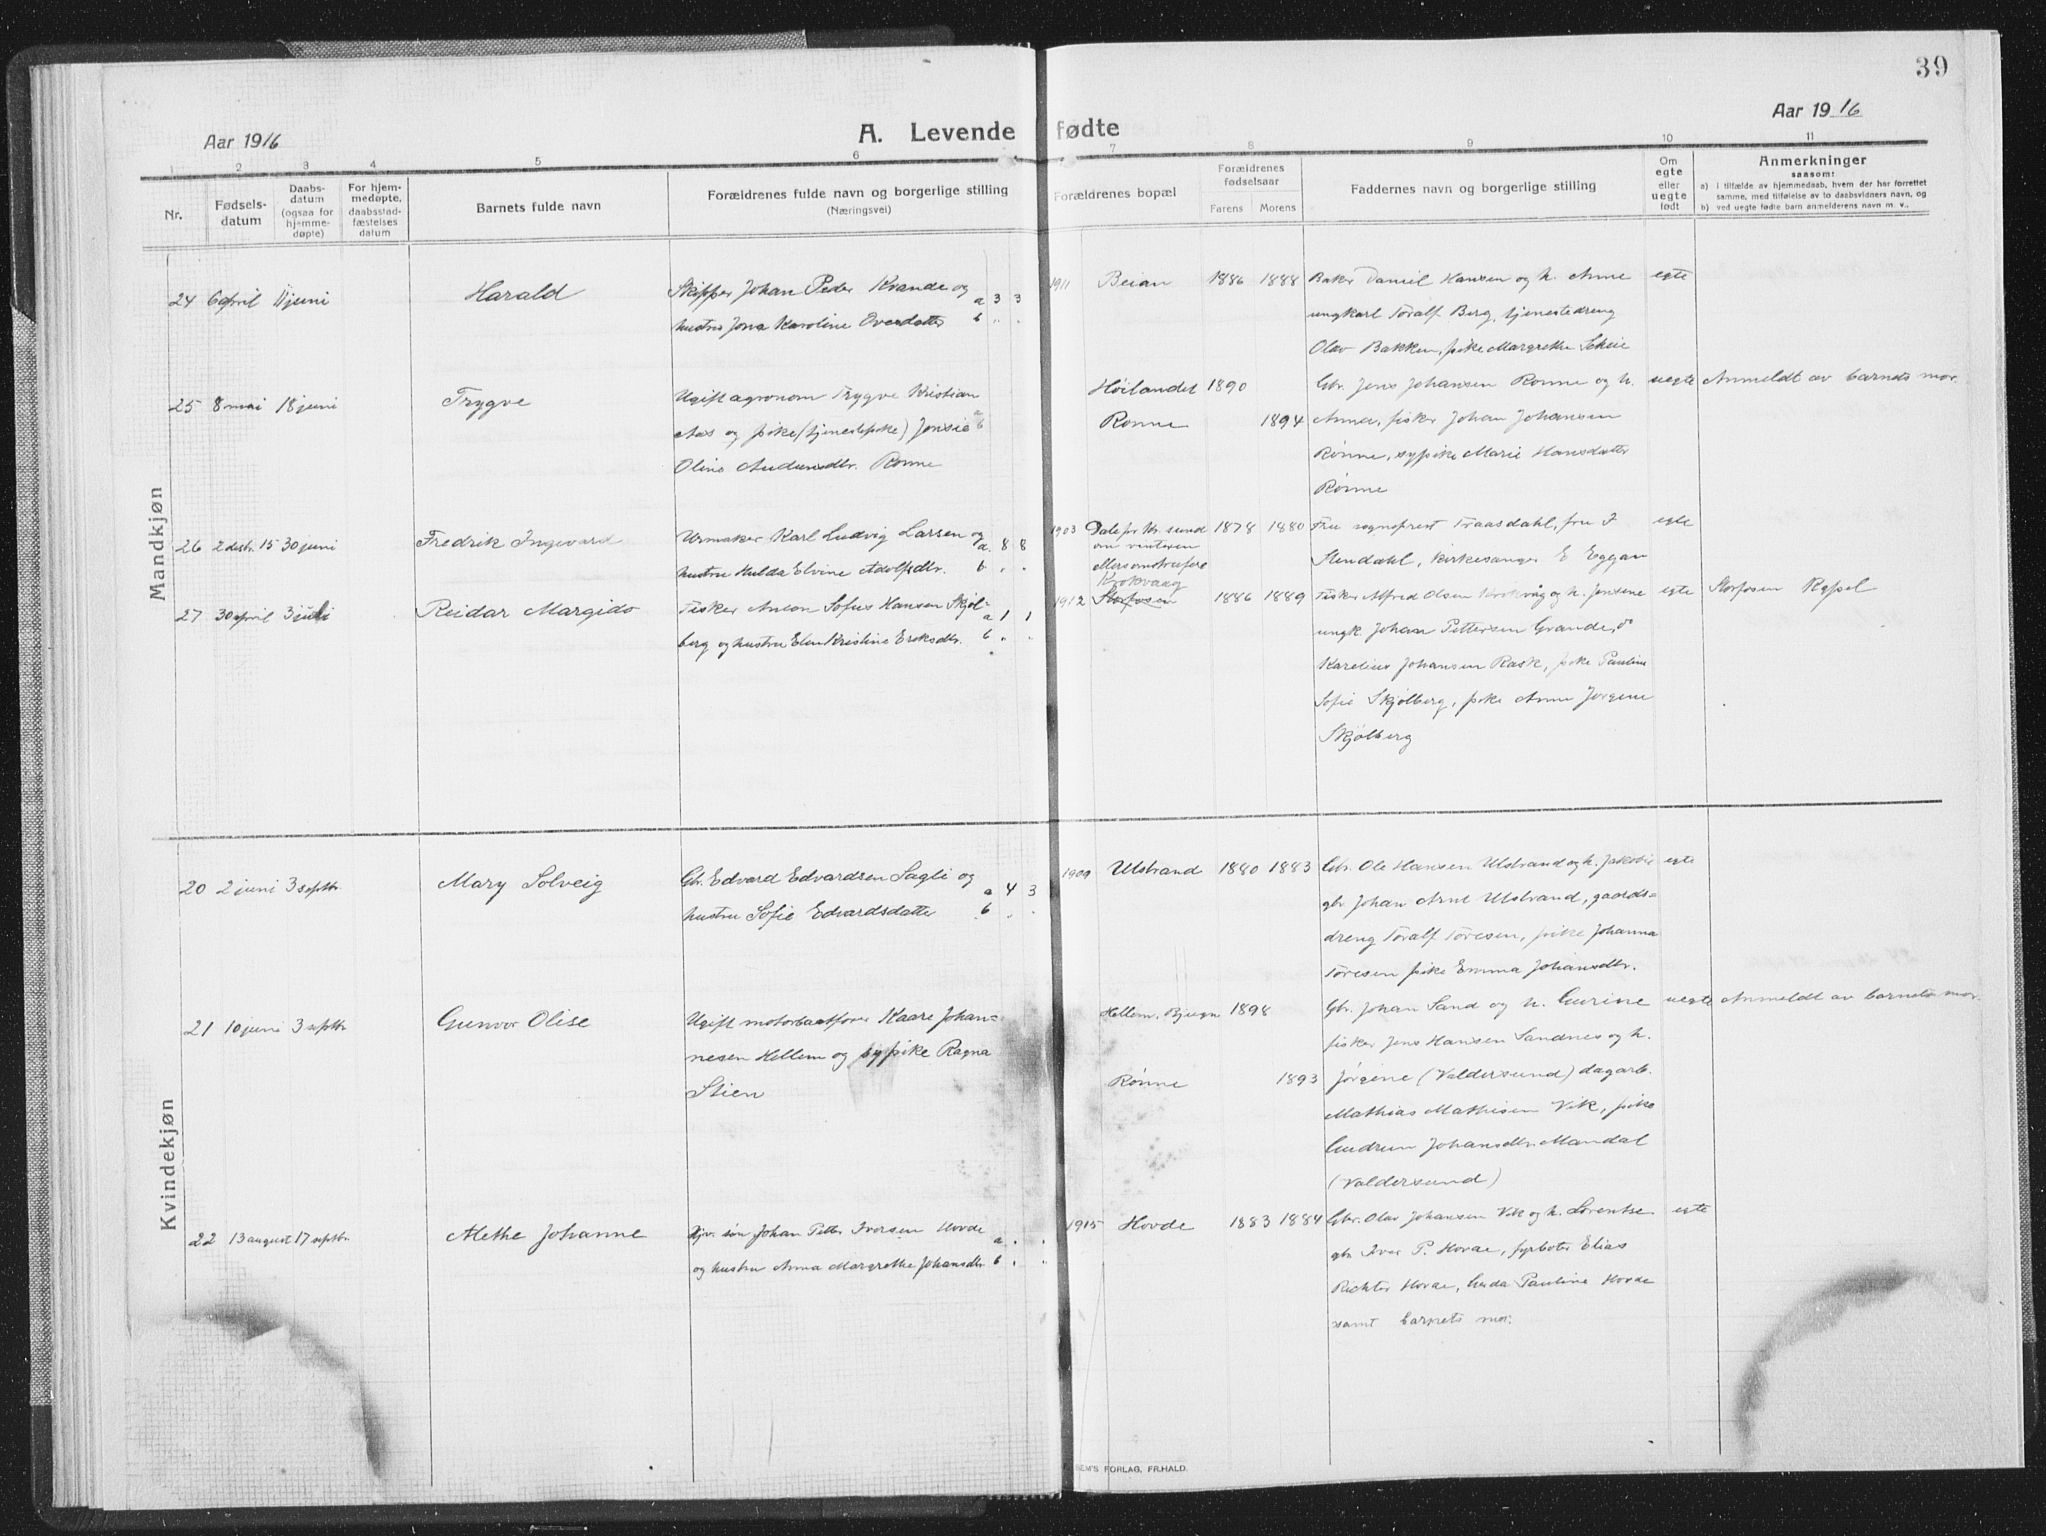 39
Aar 1916
A. Levende fødte
Aar 1916
1 2 3 4 5 6 7 8 9 10 11
Nr.
Fødsels-
datum
Daabs-
datum
(ogsaa for
hjemme-
døpte)
For hjem-
medøpte,
daabsstad-
fæstelses
datum
Barnets fulde navn
Forældrenes fulde navn og borgerlige stilling
(Næringsvei)
Forældrenes bopæl
Forældrenes
fødselsaar
Farens Morens
Faddernes navn og borgerlige stilling
Om
egte
eller
uegte
født
Anmerkninger
saasom:
a) i tilfælde av hjemmedaab, hvem der har forrettet
samme, med tilføielse av to daabsvidners navn, og
b) ved uegte fødte barn anmelderens navn m. v.,
Mandkjøn
24 6 april 11 juni Harald
Skipper Johan Peder Krande og
hustru Jona Karoline Overdatter
a 3 3
b " "
1911 Beian 1886 1888
Baker Daniel Hansen og h. Anne
ungkarl Toralf Berg, tjenestedreng
Olav Bakken, pike Margrethe
egte
25 8 mai 18 juni Trygve
Ugift agronom Trygve Kristian
Aas og pike (tjenestepike) Jensie
Oline Audunsdtr. Rønne
Høilandet 1890
Rønne 1894
Gbr. Jens Johansen Rønne og h.
Anna, fisker Johan Johansen
Rønne, sypike Marie Hansdatter
Rønne
uegte Anmeldt av barnets mor.
26 2 decbr. 15 30 juni Fredrik Ingevard
Urmaker Karl Ludvig Larsen og
hustru Hulda Elvine Adolfsdtr.
a. 8 8
b " "
1903 Dale pr Kr.sund
om vinteren
1878 1880
Fru sogneprest Traasdahl, fru J
Stendahl, kirkesanger E Eggan
egte
27 30 april 3 juli Reidar Margido
Fisker Anton Sofus Hansen Skjøl-
berg og hustru Elen Kristine Eriksdtr.
a 1 1
b " "
1912 Krokvaag
Storfosen
1886 1889
Fisker Alfred Olsen Krokvåg og h. Jensine
ungk. Johan Pettersen Grande, do
Karelius Johansen Rask, pike Pauline
Sofie Skjølberg, pike Anne Jørgine
Skjølberg
egte Storfosen Kapel
Kvindekjøn
20 2 juni 3 septbr. Mary Solveig
Gbr. Edvard Edvardsen Sagli og
hustru Sofie Edvardsdatter
a 4 3
b " "
1909 Ulstrand 1880 1883
Gbr. Ole Hansen Ulstrand og h. Jakobie
gbr Johan Arnt Ulstrand, gaards-
dreng Toralf Toresen, pike Johanna
Toresen pike Emma Johansdtr.
egte
21 10 juni 3 septbr Gunvor Olise
Ugift motorbaatfører Kaare Johan-
nesen Hellem og sypike Ragna
Stien
Hellem, Bjugn 1898
Rønne 1893
Gbr. Johan Sand og h. Gurine
fisker Jens Hansen Sandnes og h.
Jørgine (Valdersund) dagarb.
Mathias Mathisen Vik, pike
Gudrun Johansdtr. Mandal
(Valdersund)
uegte Anmeldt av barnets mor.
22 13 august 17 septbr. Alethe Johanne
Gjv. søn Johan Petter Iversen Hovde
og hustru Anna Margrethe Johansdtr
a " "
b " "
1915 Hovde 1883 1884
Gbr. Olav Johansen Vik og h. Lorentse
gbr Iver P. Hovde, fyrbøter Elias
Richter Hovde, Gerda Pauline Hovde
samt barnets mor.
egte
SEM'S FORLAG, FR.HALD.